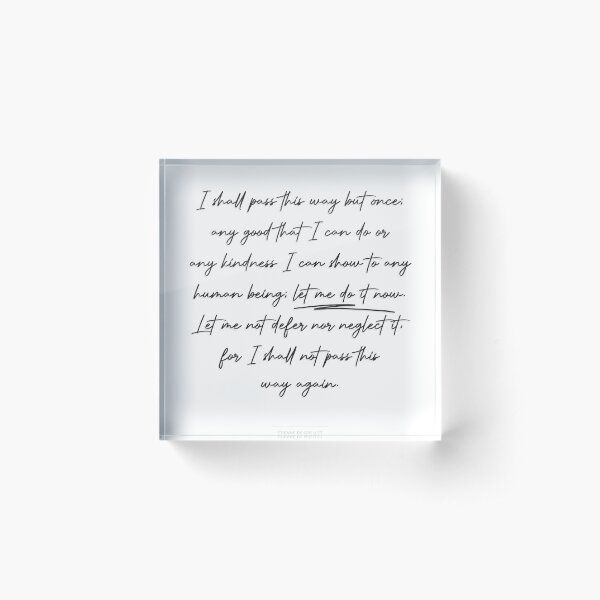 I shall pass this way but once;
any good that I can do or
any kindness I can show to any
human being; let me do it now.
Let me not defer nor neglect it,
for I shall not pass this
way again.